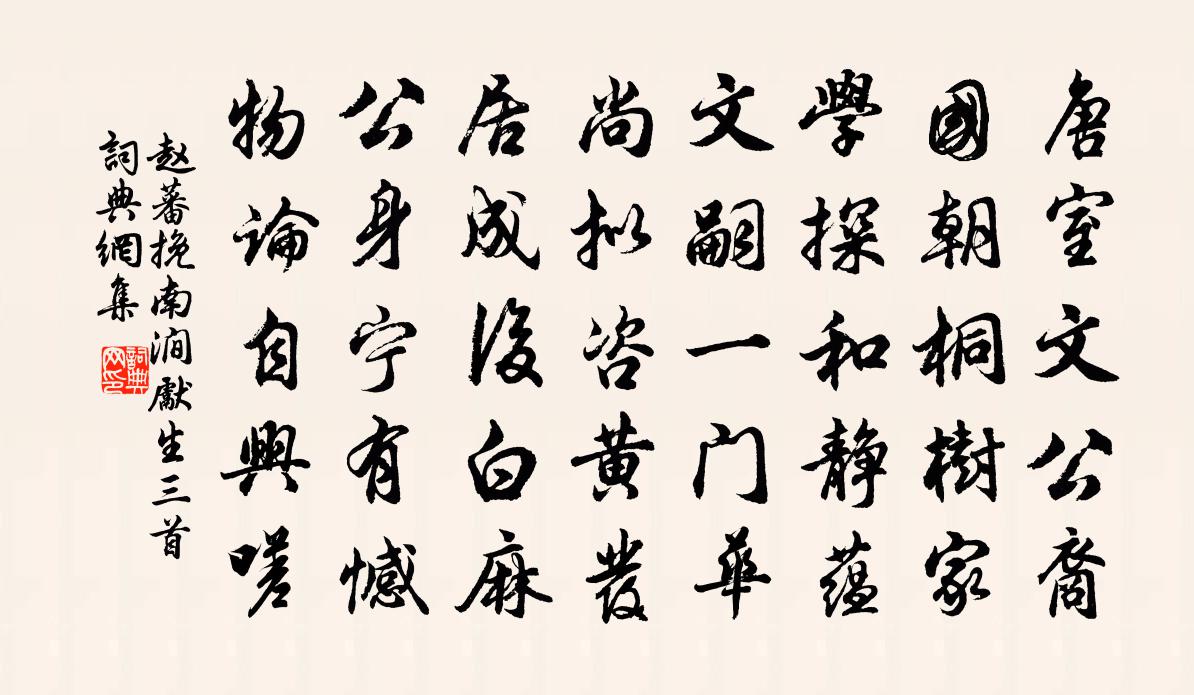 唐室文公裔
國朝桐樹家
學探和静蕴
文嗣一门華
尚拟咨黄髮
居成後白麻
公身宁有憾
物論自興嗟
赵蕃挽南澗獻生三首
詞典網集
詞典
网印